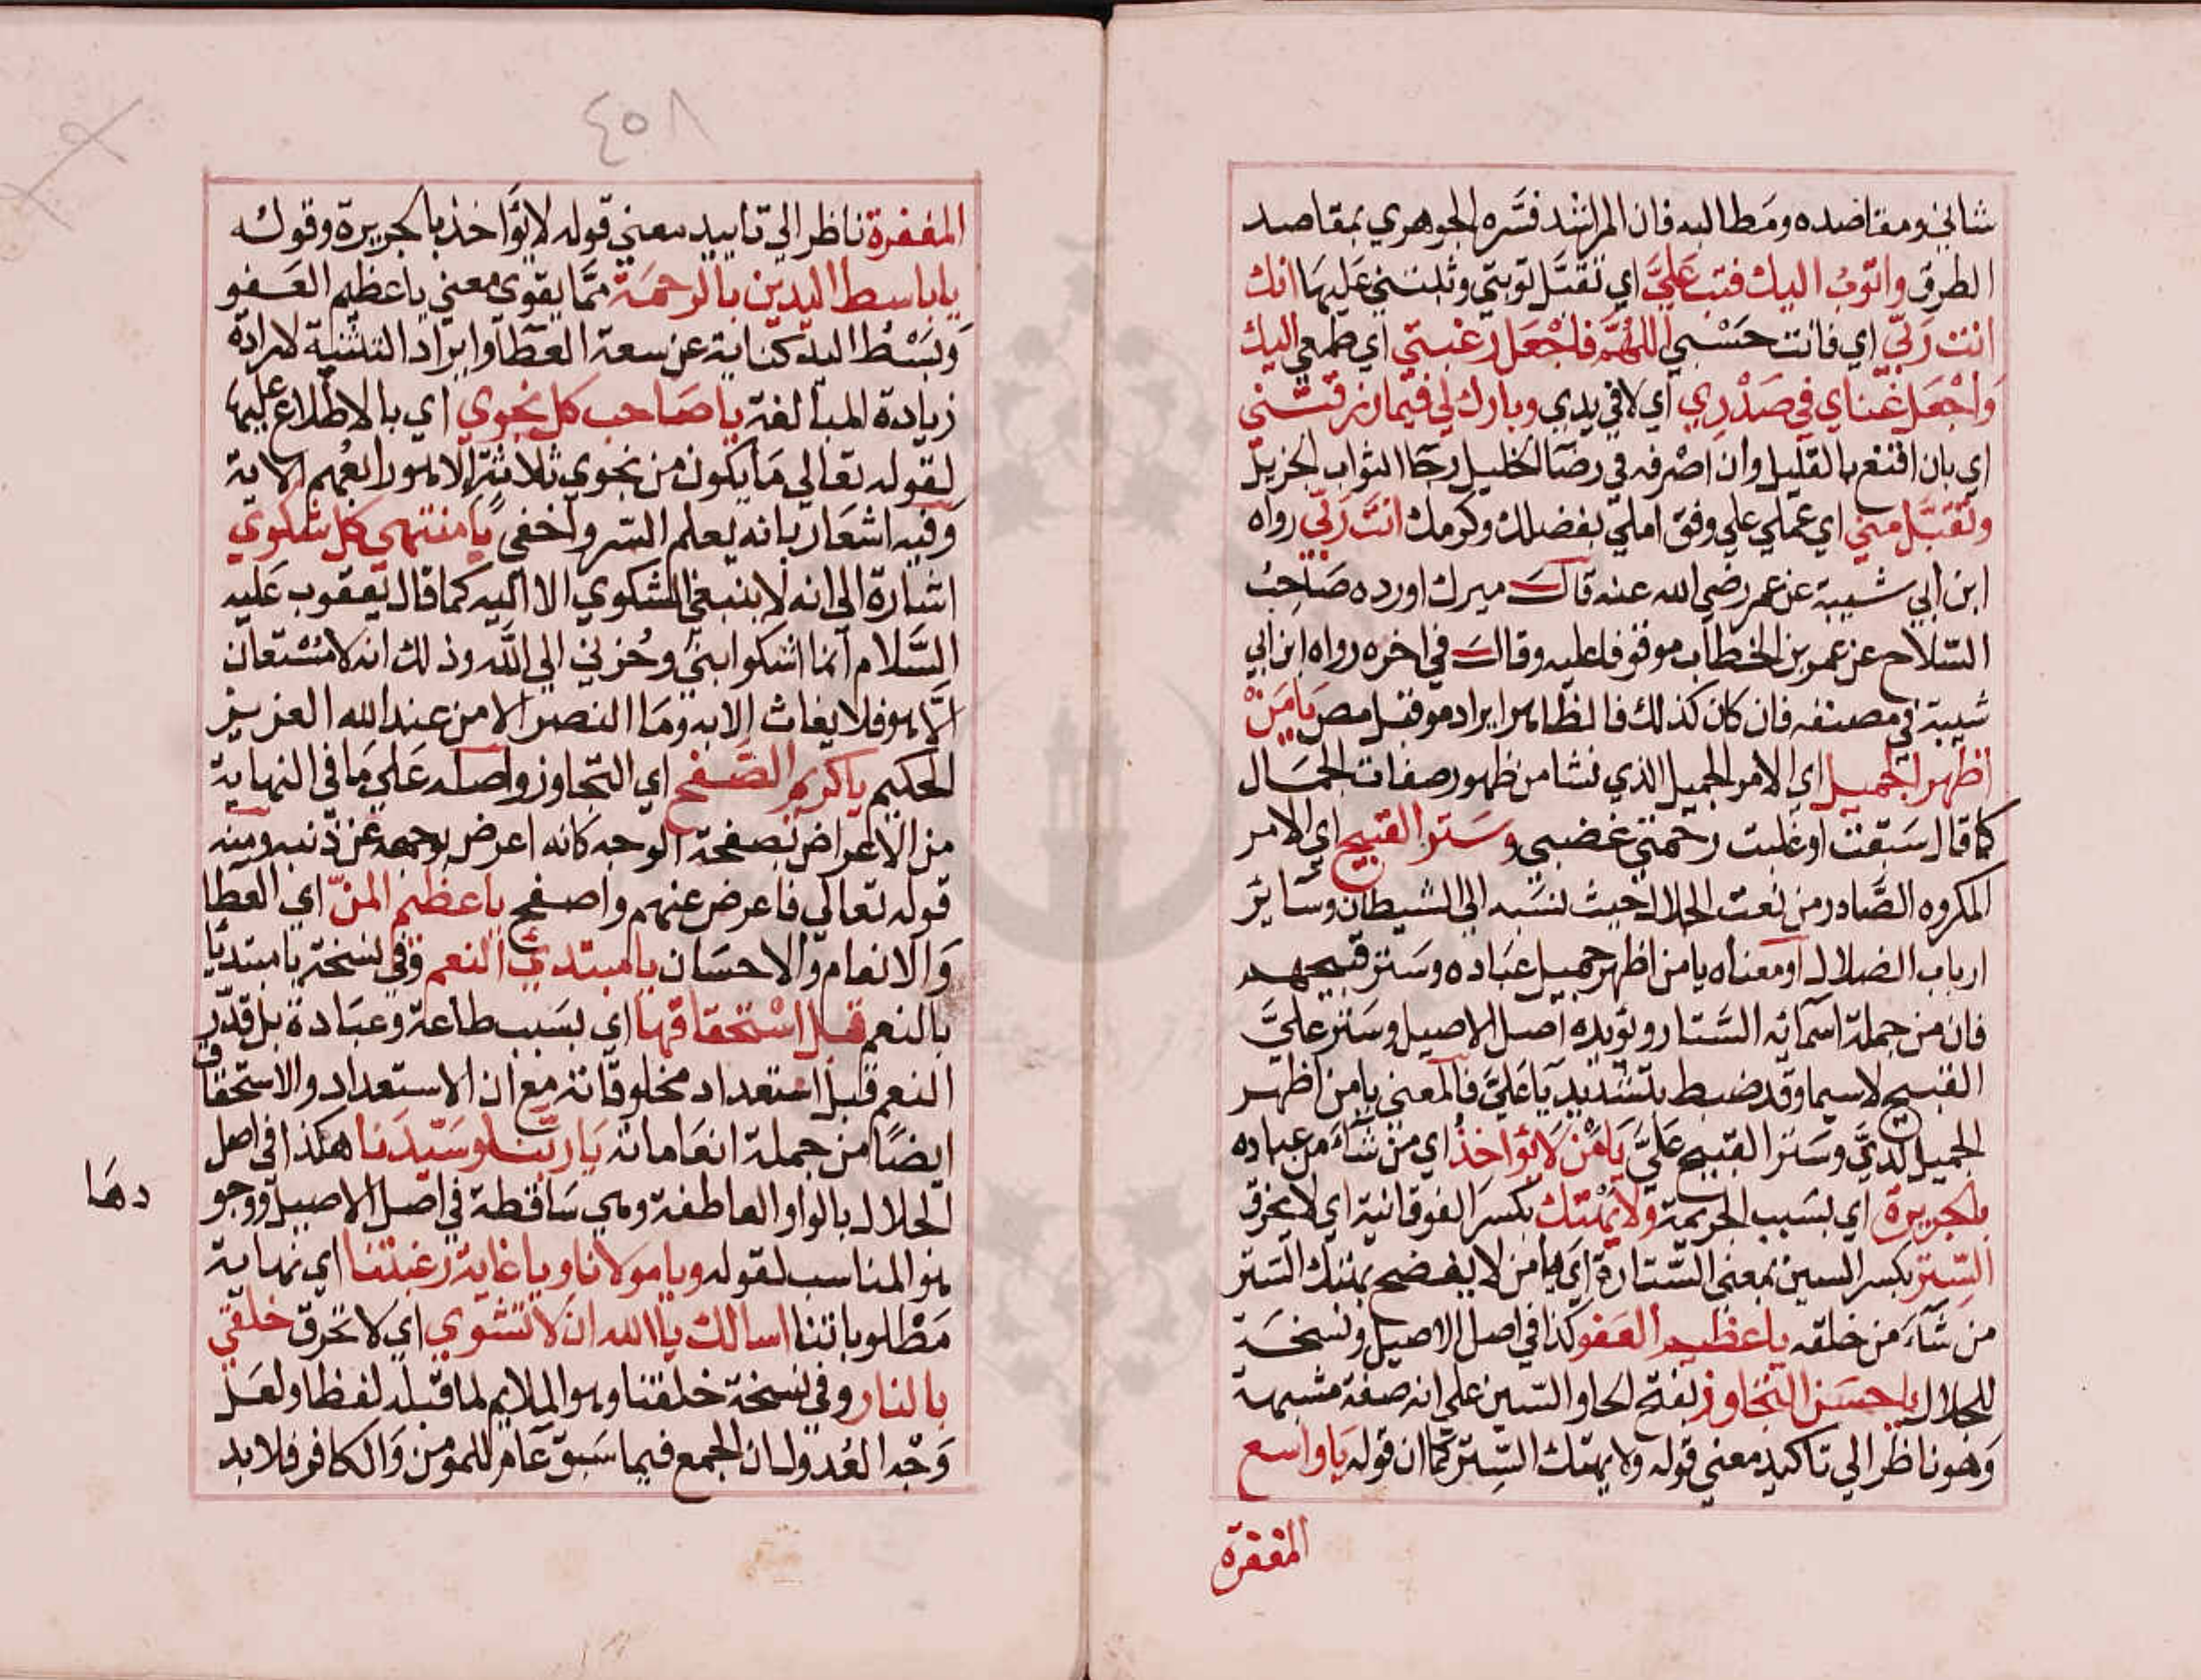 شاني ومقاصده ومطالبه فان المراشد فسره الجوهري بمقاصد
الطرق واتوب اليك فتب علي اي تقبل توبتي وثبتني عليها انك
انت ربي اي فانت حسبي اللهم فاجعل رغبتي اي طمعي اليك
واجعل غناي في صدري اي لا في يدي وبارك لي فيما رزقتني
اي بان اقنع بالقليل وان اصرفه في رضا الخليل رجا الثواب الجزيل
وتقبل مني اي عملي علي وفق املي بفضلك وكرمك انت ربي رواه
ابن ابي شيبة عن عمر رضي الله عنه قال ميرك اورده صاحب
السلاح عن عمر بن الخطاب موقوفا عليه وقال في اخره رواه ابن ابي
شيبة في مصنفه فان كان كذلك فالظاهر ايراد موقبل مص يا من
اظهر الجميل اي الامر الجميل الذي نشا من ظهور صفات الجمال
كما قال سبقت او غلبت رحمتي غضبي وستر القبيح اي الامر
المكروه الصادر من نعت الجلال حيث نسبه الي الشيطان وساير
ارباب الضلال او معناه يا من اظهر جميل عباده وستر قبيحهم
فان من جملة اسمائه الستار ويؤيده اصل الاصيل وستر علي
القبيح لاسيما وقد ضبط بتشديد يا علي فالمعني يا من اظهر
الجميل لدي وستر القبيح علي يا من لا يؤاخذ اي من شاء من عباده
بالجريرة اي بسبب الجريمة ولا يهتك بكسر الفوقانية اي لا يخرق
الستر بكسر السين بمعني الستارة اي يا من لا يفضح بهتك الستر
من شاء من خلقه يا عظيم العفو كذا في اصل الاصيل ونسخة
للجلال يا حسن التجاوز بفتح الحا والسين علي انه صفة مشبهة
وهو ناظر الي تاكيد معني قوله ولا يهتك الستر كما ان قوله يا واسع
المغفرة
٤٥٨
المغفرة ناظر الي تاييد معني قوله لا يؤاخذ بالجريرة وقوله
يا باسط اليدين بالرحمة مما يقوي معني يا عظيم العفو
وبسط اليد كناية عن سعة العطا وايراد التثنية لارادة
زيادة المبالغة يا صاحب كل نجوي اي بالاطلاع عليها
لقوله تعالي ما يكون من نجوي ثلاثة الا هو رابعهم الاية
وفيه اشعار بانه يعلم السر واخفي يا منتهي كل شكوي
اشارة الي انه لا ينبغي الشكوي الا اليه كما قال يعقوب عليه
السلام انما اشكوا بثي وحزني الي الله وذلك انه لا مستعان
الا هو فلا يغاث الا به وما النصر الا من عند الله العزيز
الحكيم يا كريم الصفح اي التجاوز واصله علي ما في النهاية
من الاعراض بصفحة الوجه كانه اعرض بوجهه عن ذنبه ومنه
قوله تعالي فاعرض عنهم واصفح يا عظيم المن اي العطا
والانعام والاحسان يا مبتدئ النعم وفي نسخة يا مبتديا
بالنعم قبل استحقاقها اي بسبب طاعة وعبادة بل قدر
النعم قبل استعداد مخلوقاته مع ان الاستعداد والاستحقاق
ايضا من جملة انعاماته يا ربنا وسيدنا هكذا في اصل
الجلال بالواو العاطفة وهي ساقطة في اصل الاصيل ووجو
دها
هو المناسب لقوله ويا مولانا ويا غاية رغبتنا اي نهاية
مطلوباتنا اسالك يا الله ان لا تشوي اي لا تحرق خلقي
بالنار وفي نسخة خلقنا وهو الملايم لما قبله لفظا ولعل
وجه العدول ان الجمع فيما سبق عام للمومن والكافر فلا بد